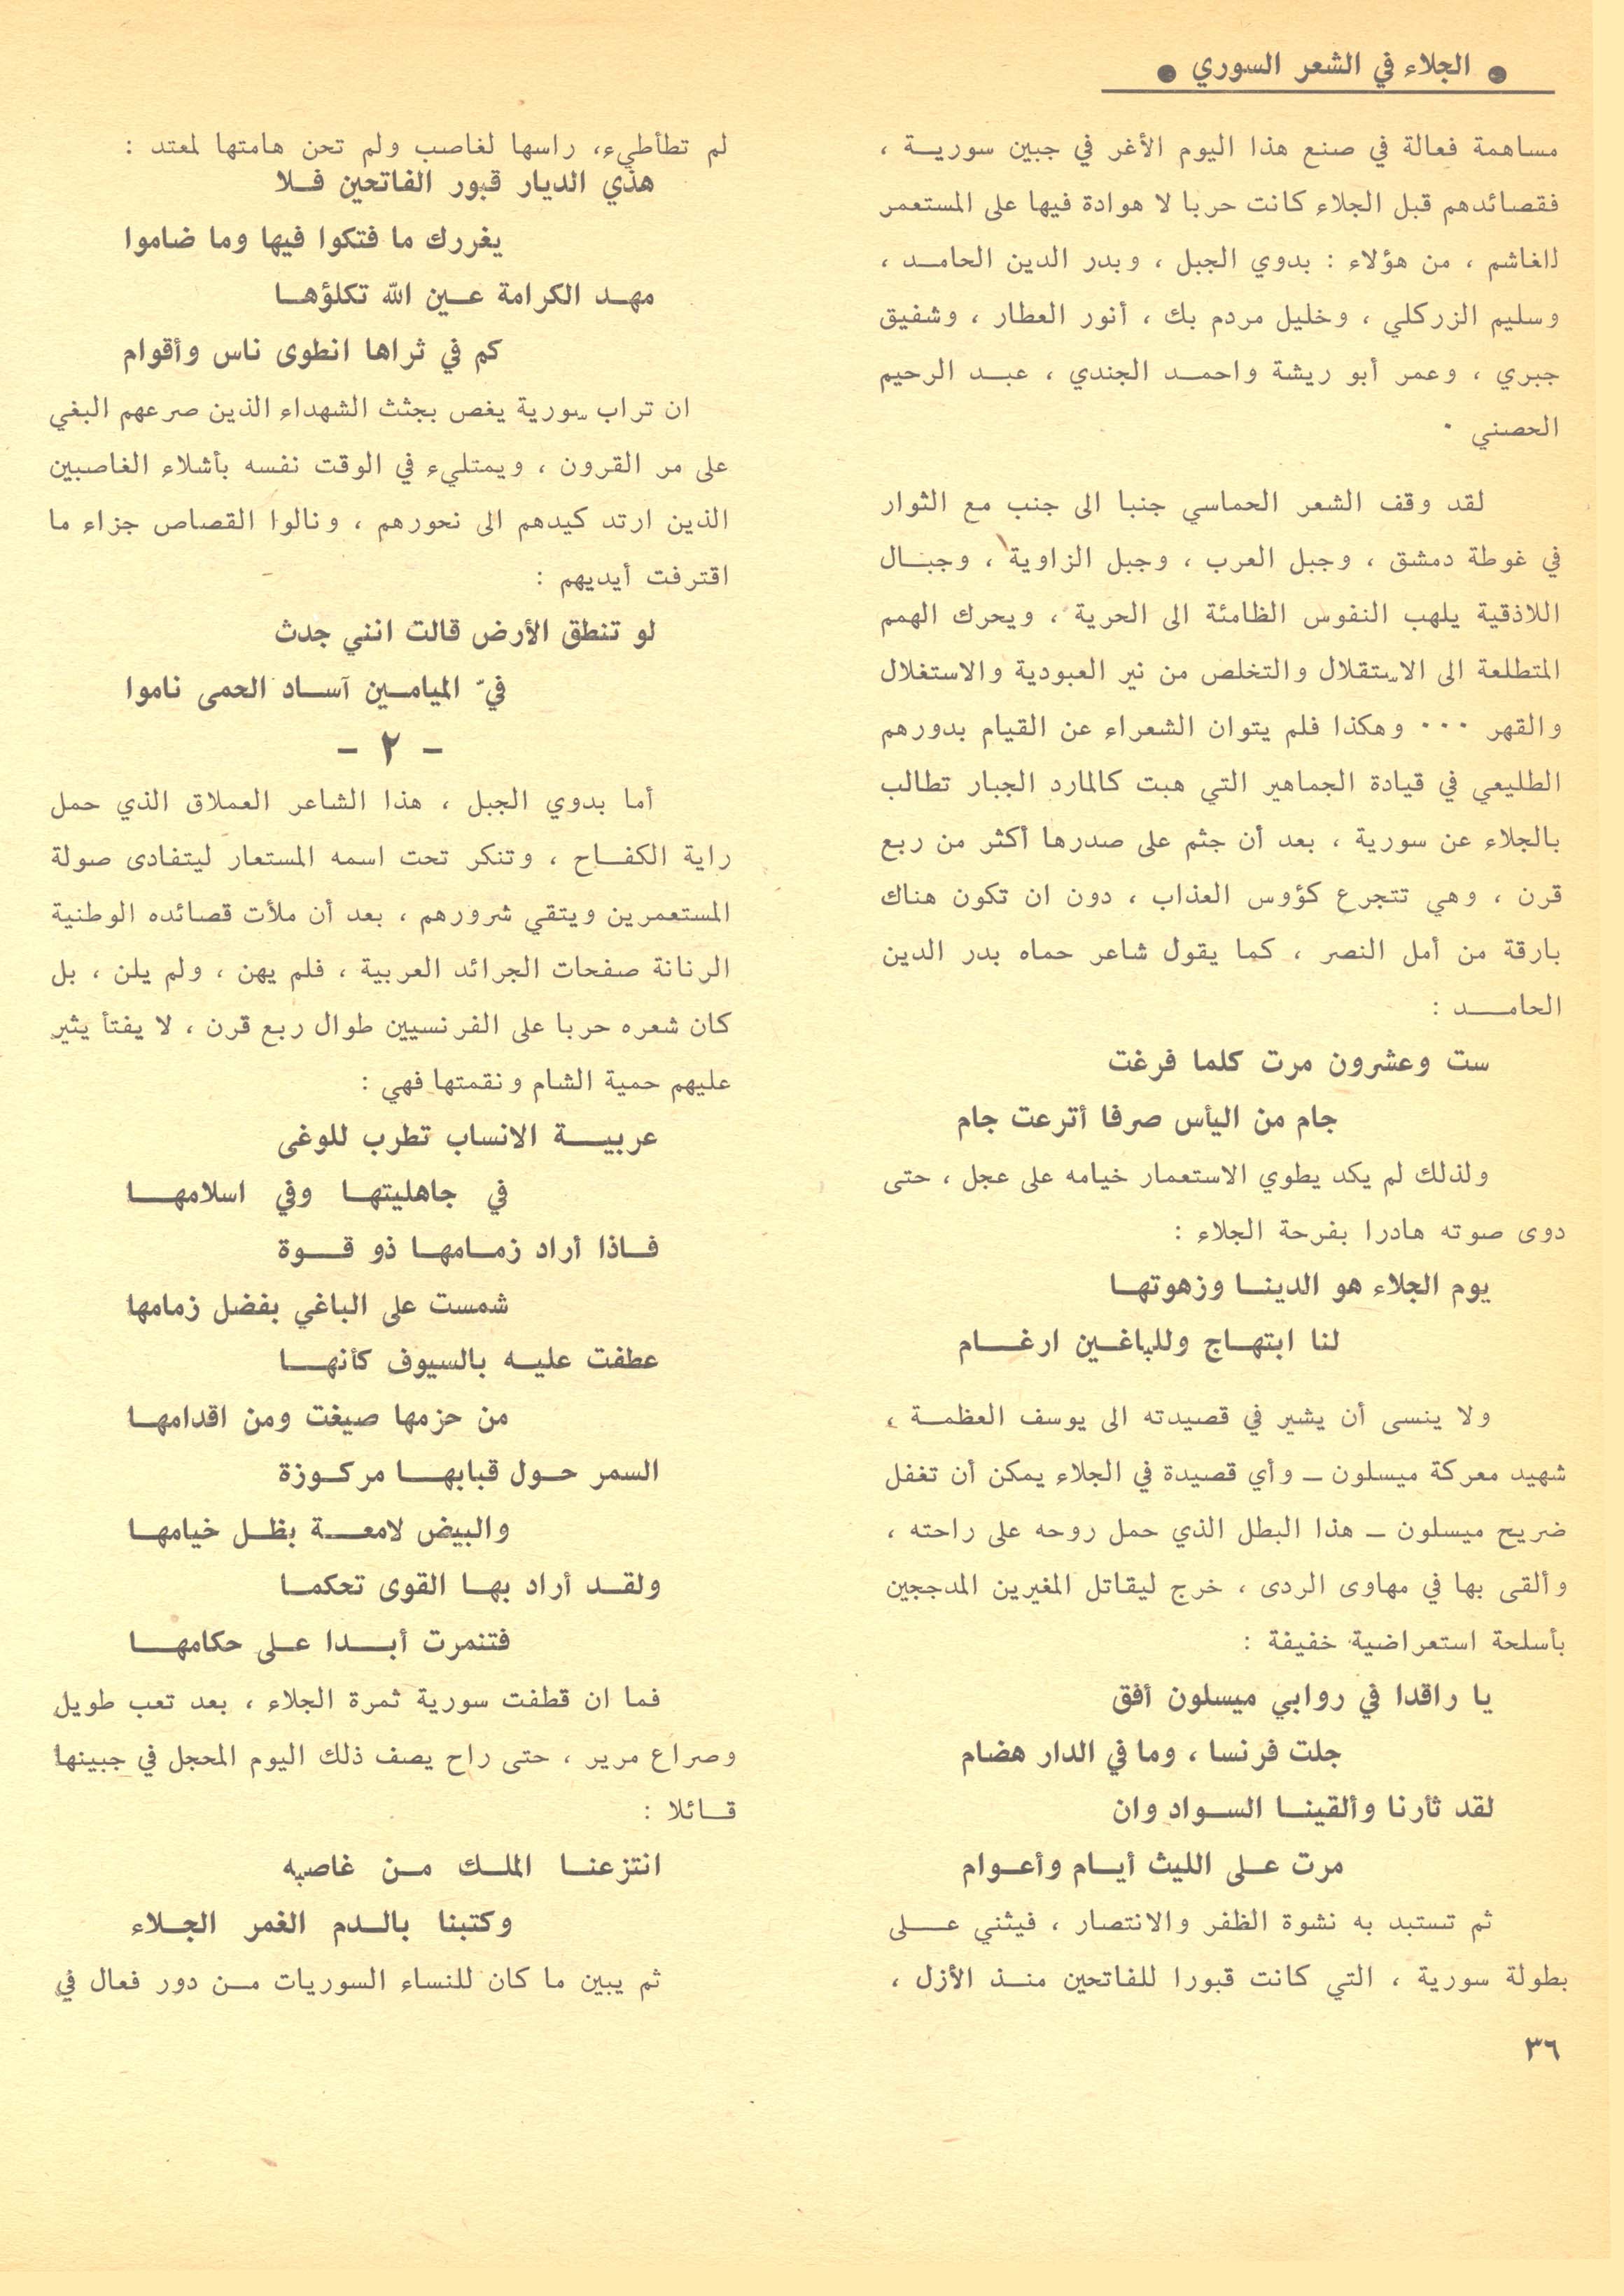 ● الجلاء في الشعر السوري ●
مساهمة فعالة في صنع هذا اليوم الأغر في جبين سوريـة ،
فقصائدهم قبل الجلاء كانت حربا لا هوادة فيها على المستعمر
الغاشم ، من هؤلاء : بدوي الجبل ، وبدر الدين الحامـد ،
وسليم الزركلي ، وخليل مردم بك ، أنور العطار ، وشفيق
جبري ، وعمر أبو ريشة واحمـد الجندي ، عبـد الرحيم
الحصني ٠
لقد وقف الشعر الحماسي جنبا الى جنب مع الثوار
في غوطة دمشق ، وجبل العرب ، وجبل الزاوية ، وجبـال
اللاذقية يلهب النفوس الظامئة الى الحرية ، ويحرك الهمم
المتطلعة الى الاستقلال والتخلص من نير العبودية والاستغلال
والقهر ٠٠٠ وهكذا فلم يتوان الشعراء عن القيام بدورهم
الطليعي في قيادة الجماهير التي هبت كالمارد الجبار تطالب
بالجلاء عن سورية ، بعد أن جثم على صدرها أكثر من ربع
قرن ، وهي تتجرع كؤوس العذاب ، دون ان تكون هناك
بارقة من أمل النصر ، كما يقول شاعر حماه بدر الدين
الحامـــد :
ست وعشرون مرت كلما فرغت
جام من اليأس صرفا أترعت جام
ولذلك لم يكد يطوي الاستعمار خيامه على عجل ، حتى
دوى صوته هادرا بفرحة الجلاء :
يوم الجلاء هو الدينـا وزهوتهـا
لنا ابتهـاج وللباغـين ارغـــام
ولا ينسى أن يشير في قصيدته الى يوسف العظمـة ،
شهيد معركة ميسلون ــ وأي قصيدة في الجلاء يمكن أن تغفل
ضريح ميسلون ــ هذا البطل الذي حمل روحه على راحته ،
وألقى بها في مهاوى الردى ، خرج ليقاتل المغيرين المدججين
بأسلحة استعراضية خفيفة :
يا راقدا في روابي ميسلون أفق
جلت فرنسا ، وما في الدار هضام
لقد ثأرنا وألقينـا السـواد وان
مرت علـى الليث أيـام وأعـوام
ثم تستبد به نشوة الظفر والانتصار ، فيثني علــى
بطولة سورية ، التي كانت قبورا للفاتحين منـذ الأزل ،
لم تطأطيء، راسها لغاصب ولم تحن هامتها لمعتد :
هذي الديار قبور الفاتحين فـلا
يغررك ما فتكوا فيها وما ضاموا
مهـد الكرامة عـين الله تكلؤهـا
كم في ثراها انطوى ناس وأقوام
ان تراب سورية يغص بجثث الشهداء الذين صرعهم البغي
على مر القرون ، ويمتليء في الوقت نفسه بأشلاء الغاصبين
الذين ارتد كيدهم الى نحورهم ، ونالوا القصاص جزاء ما
اقترفت أيديهم :
لو تنطق الأرض قالت انني جدث
فيّ الميامـين آسـاد الحمى ناموا
– ٢ –
أما بدوي الجبل ، هذا الشاعر العملاق الذي حمل
راية الكفـاح ، وتنكر تحت اسمه المستعار ليتفادى صولة
المستعمرين ويتقي شرورهم ، بعد أن ملأت قصائده الوطنية
الرنانة صفحات الجرائد العربية ، فلم يهن ، ولم يلن ، بل
كان شعره حربا على الفرنسيين طوال ربع قرن ، لا يفتأ يثير
عليهم حمية الشام ونقمتها فهي :
عربيـــة الانساب تطرب للوغى
في جاهليتهـا وفي اسلامهـــا
فـاذا أراد زمـامهـا ذو قــوة
شمست على الباغي بفضل زمامها
عطفت عليـه بالسيوف كأنهـــا
من حزمها صيغت ومن اقدامهـا
السمر حـول قبابهـــا مركـوزة
والبيض لامعـــة بظـل خيامهـا
ولقـد أراد بهـا القوى تحكمـا
فتنمرت أبـــدا علـى حكامهــا
فما ان قطفت سورية ثمرة الجلاء ، بعد تعب طويل
وصراع مرير ، حتى راح يصف ذلك اليوم المحجل في جبينها
قـائلا :
انتزعنـا الملـك مـن غاصبه
وكتبنا بالـدم الغمر الجـلاء
ثم يبين ما كان للنساء السوريات مـن دور فعال في
٣٦